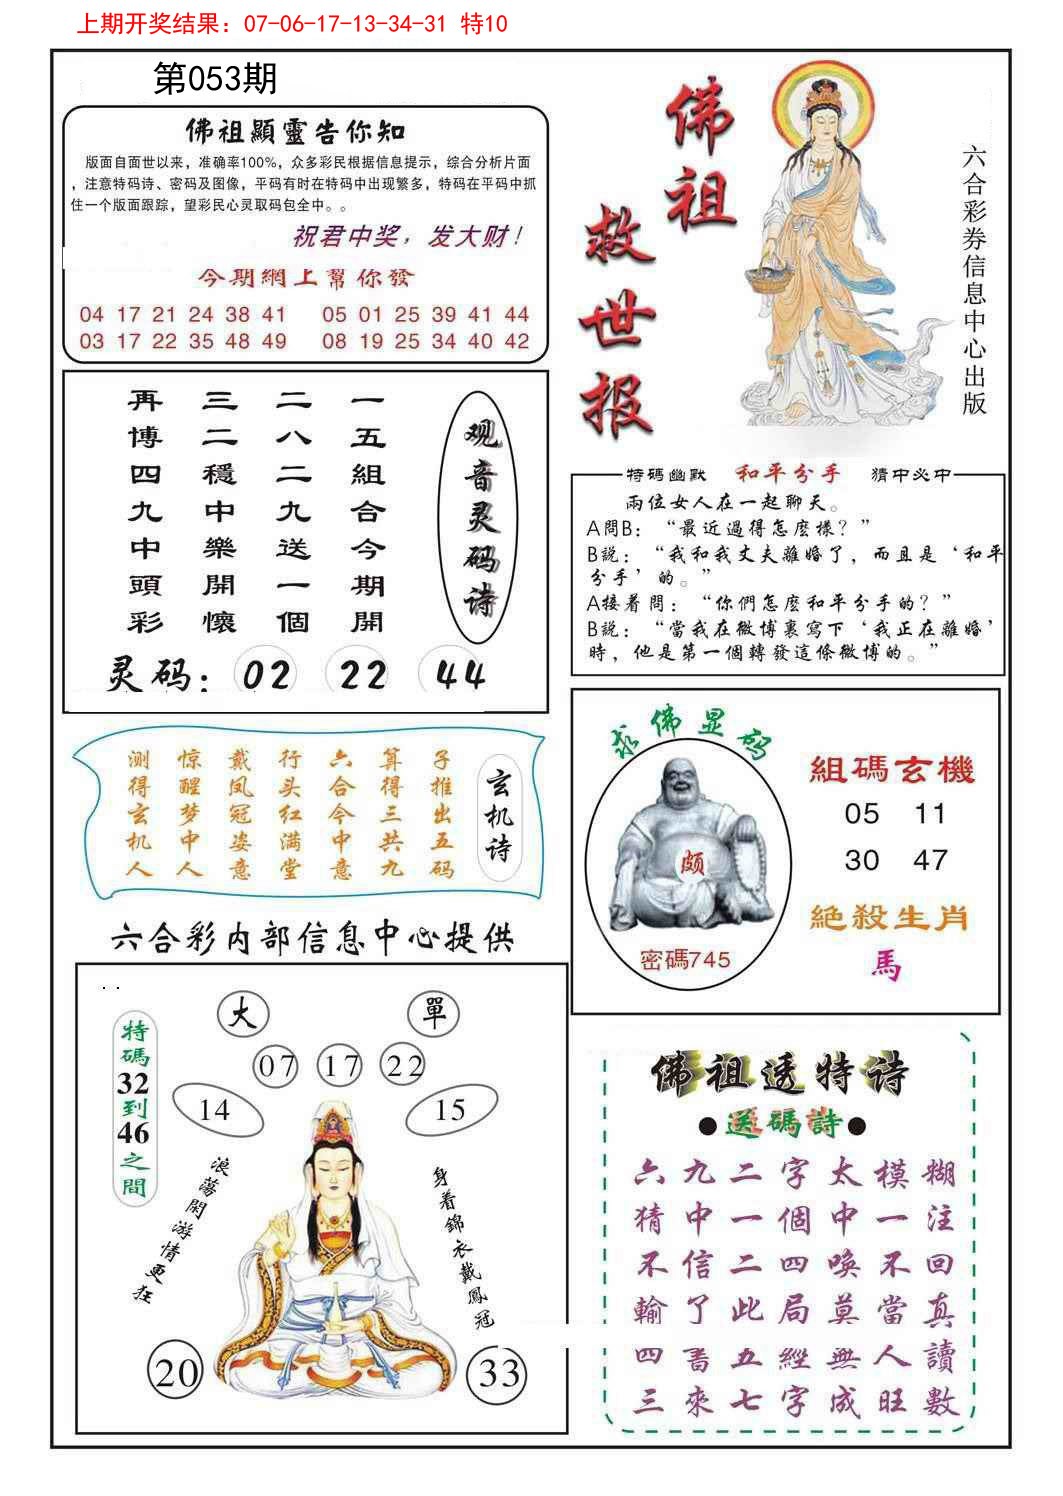 上期开奖结果：07-06-17-13-34-31 特10
第053期
佛祖顯靈告你知
版面自面世以来，准确率100%，众多彩民根据信息提示，综合分析片面
，注意特码诗、密码及图像，平码有时在特码中出现繁多，特码在平码中抓
住一个版面跟踪，望彩民心灵取码包全中。。
祝君中奖，发大财！
今期網上幫你發
04 17 21 24 38 41 05 01 25 39 41 44
03 17 22 35 48 49 08 19 25 34 40 42
佛祖
救世报
六合彩券信息中心出版
观音灵码诗
一五組合今期開
二八二九送一個
三二穩中樂開懷
再博四九中頭彩
灵码：02 22 44
特碼幽默 和平分手 猜中必中
兩位女人在一起聊天。
A問B：“最近過得怎麽樣？”
B説：“我和我丈夫離婚了，而且是‘和平
分手’的。”
A接着問：“你們怎麽和平分手的？”
B説：“當我在微博裏寫下‘我正在離婚’
時，他是第一個轉發這條微博的。”
玄机诗
子推出五码
算得三共九
六合今中意
行头红满堂
戴凤冠姿意
惊醒梦中人
测得玄机人
求佛显码
颇
密碼745
組碼玄機
05 11
30 47
絕殺生肖
馬
六合彩内部信息中心提供
大 單
07 17 22
14 15
特碼32到46之間
浪蕩閑游情更狂
身着錦衣戴鳳冠
20 33
佛祖透特诗
●送碼詩●
六九二字太模糊
猜中一個中一注
不信二四喚不回
輸了此局莫當真
四書五經無人讀
三來七字成旺數